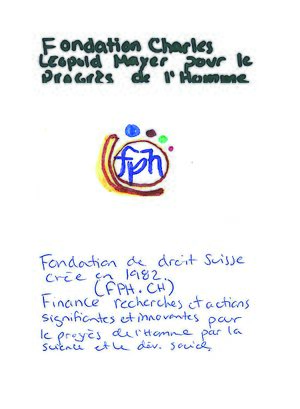 Fondation Charles
Léopold Mayer pour le
Progrès de l'Homme
fph
Fondation de droit Suisse
crée en 1982.
(FPH.CH)
Finance recherches et actions
significantes et innovantes pour
le progrès de l'Homme par la
science et le dév. social,